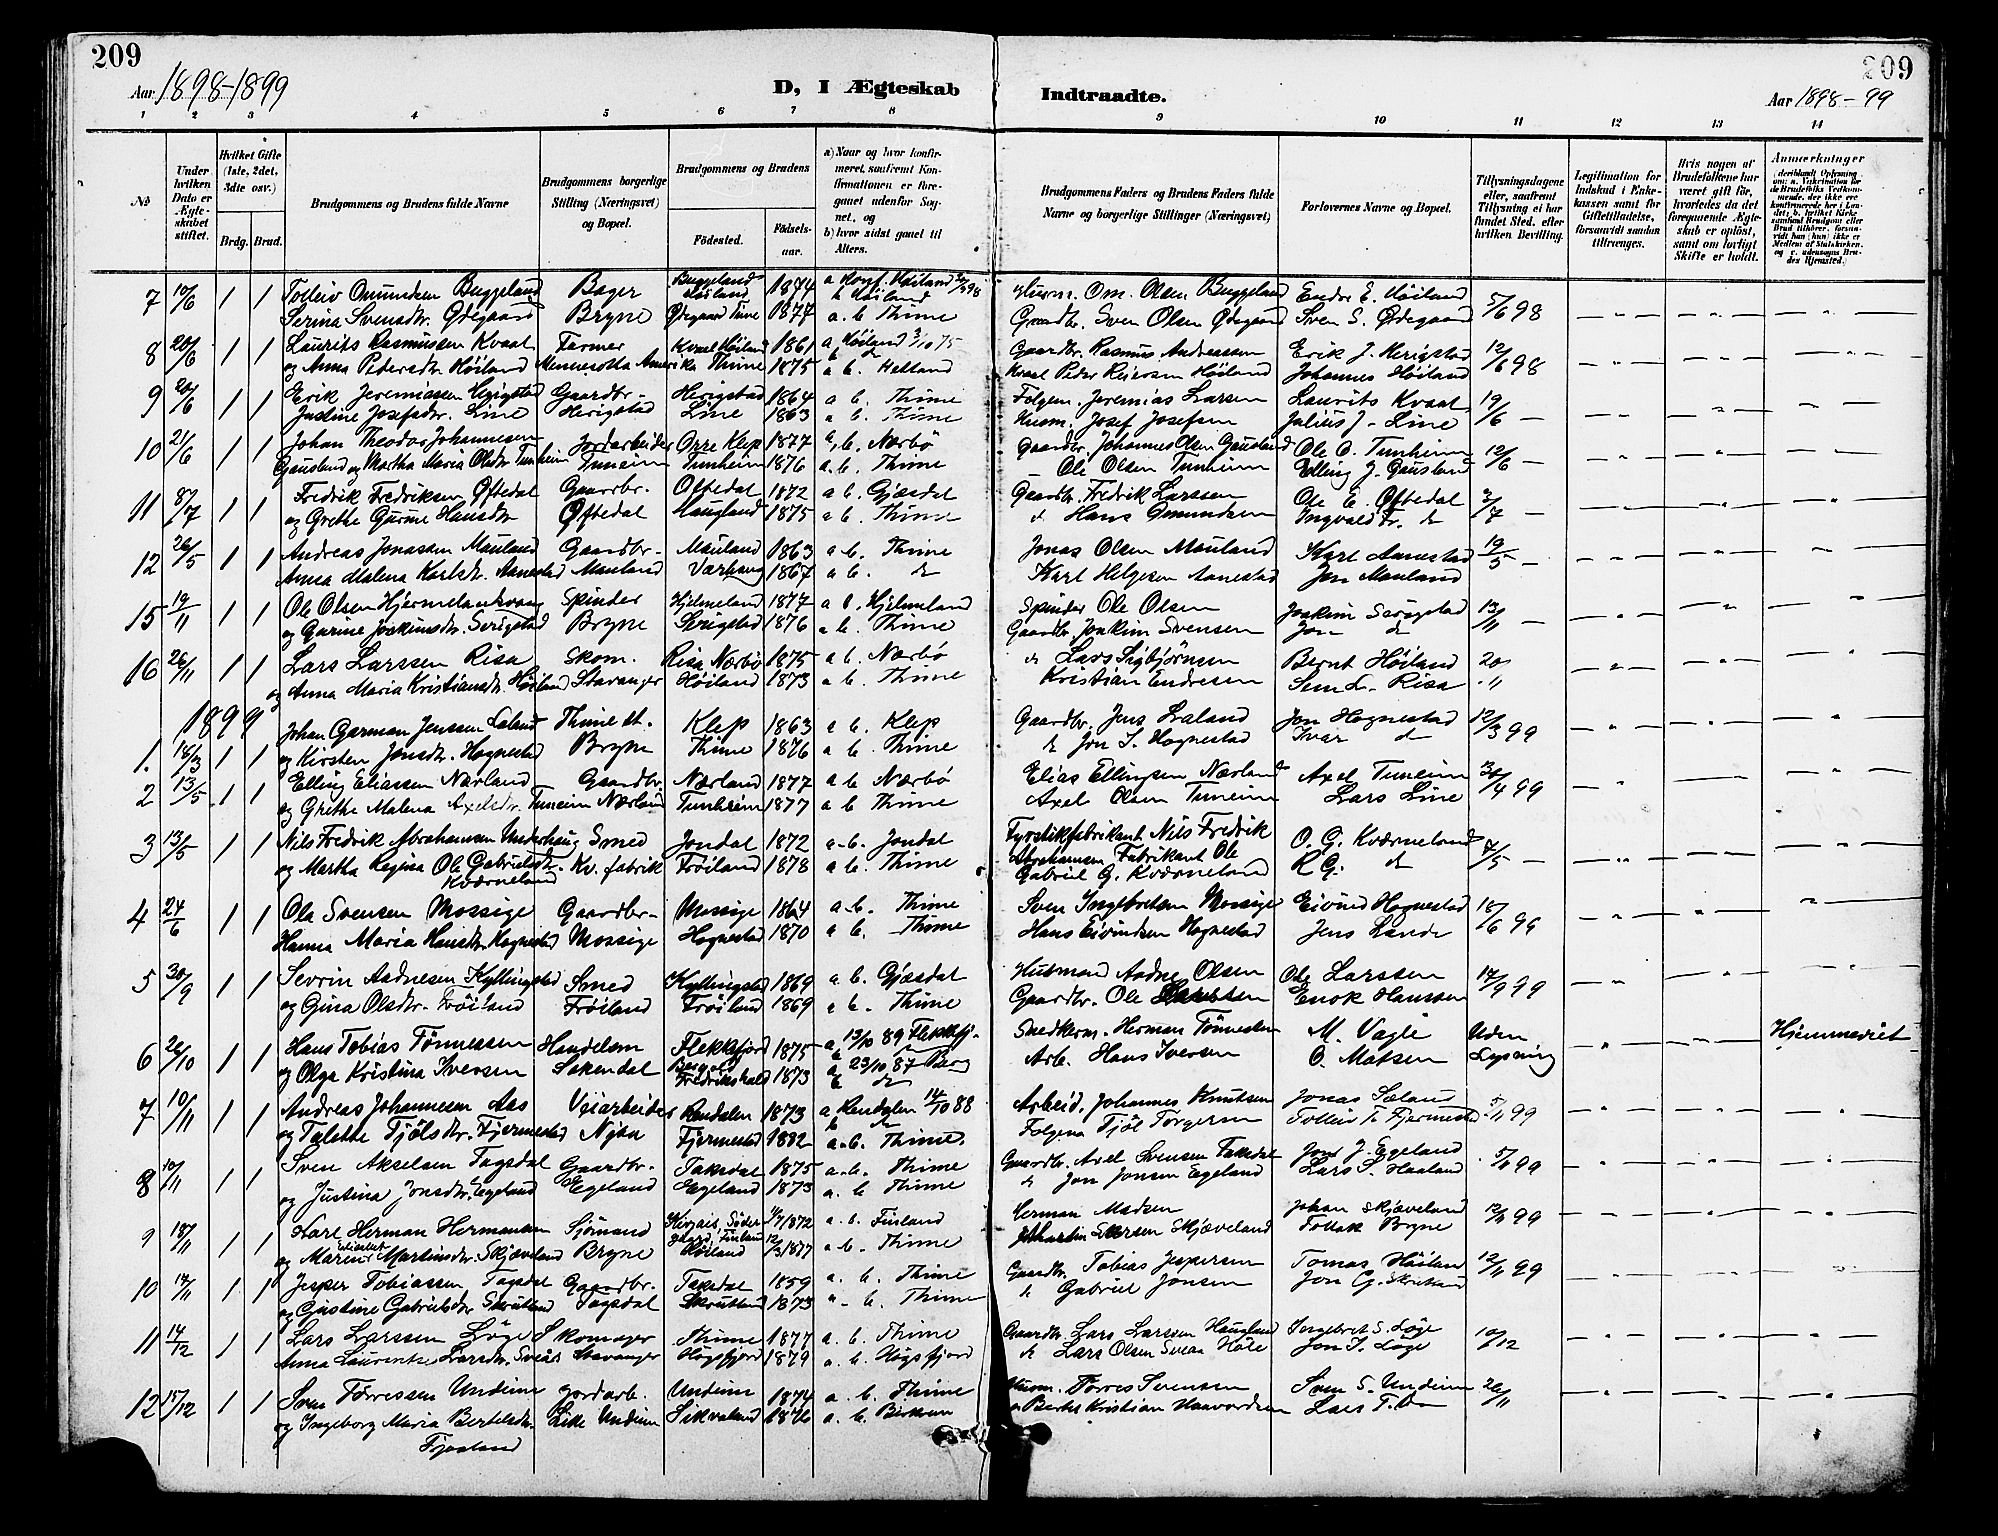 209
Aar 1898-1899
D, I Ægteskab Indtraadte.
209
Aar 1898-99
1 2 3 4 5 6 7 8 9 10 11 12 13 14
No
Under hvilken Dato er Ægteskabet stiftet.
Hvilket Gifte (1ste, 2det, 3die osv.)
Brdg. Brud.
Brudgommens og Brudens fulde Navne
Brudgommens borgerlige Stilling (Næringsvei) og Bopæl.
Brudgommens og Brudens
Fødested. Fødselsaar.
a) Naar og hvor konfirmeret, saafremt Konfirmationen er foregaaet udenfor Sognet, og
b) hvor sidst gaaet til Alters.
Brudgommens Faders og Brudens Faders fulde Navne og borgerlige Stillinger (Næringsvei)
Forlovernes Navne og Bopæl.
Tillysningsdagene eller, saafremt Tillysning ei har fundet Sted, efter hvilken Bevilling.
Legitimation for Indskud i Enkekassen samt for Giftetilladelse, forsaavidt saadan tiltrænges.
Hvis nogen af Brudefolkene har været gift før, hvorledes da det foregaaende Ægteskab er opløst, samt om lovligt Skifte er holdt.
Anmerkninger
7 10/6 1 1 Tolleiv Omundsen Buggeland Bager Buggeland Høiland 1874 Husm. Om. Olsen Buggeland Endre E. Høiland 5/6 98
Serina Svensdtr. Ødegaard Bryne Ødegaard Time 1877 a. b Thime Gaardbr. Sven Olsen Ødegaard Sven S. Ødegaard
8 20/6 1 1 Laurits Rasmussen Kvaal Farmer Kvaal Høiland 1861 a Høiland 3/10 75 Gaardbr. Rasmus Andreassen Erik J. Herigstad 12/6 98
og Anna Pedersdtr Høiland Mennesotha Amerika Thime 1875 a b. Helland Kvaal Peder Reiersen Høiland Johannes Høiland
9 20/6 1 1 Erik Jeremiassen Herigstad Gaardbr- Herigstad 1864 a b. Thime Folgem. Jeremias Larsen Laurits Kvaal 19/6 —
Justine Josefsdtr. Line Herigstad Line 1863 a b. Thime Husm. Josef Josefsen Julius J- Line
10 21/6 1 1 Johan Theodor Johannesen Jordarbeider Orre Klep 1877 a, b. Nærbö Gaardbr. Johannes Olsen Gausland Ole O. Tunheim 12/6 —
Gausland og Martha Maria Olsdtr Tunheim Tuneim Tunheim 1876 a. b. Thime Ole Olsen Tuneim Elling J. Gausland
11 8/7 1 1 Fredrik Fredriksen Øftedal Gaardbr. Oltedal 1872 a b. Gjæsdal Gaardbr. Fredrik Larssen Ole E. Øftedal 2/7 —
og Grethe Gurine Hansdtr Øftedal Haugland 1875 a b. Thime d Hans Omundsen Ingvald Fr. d
12 26/5 1 1 Andreas Jonassen Mauland Gaardbr- Mauland 1863 a b. Thime Jonas Olsen Mauland Karl Aanestad 19/5 —
Anna Malena Karlsdtr. Aanestad Mauland Varhaug 1867 a b. d Karl Helgesen Aanestad Jon Mauland
15 19/11 1 1 Ole Olsen Spinder Hjelmeland 1877 a b. Hjelmeland Spinder Ole Olsen Joakim Serigstad 13/11 —
og Gurine Joakimsdtr. Serigstad Bryne Serigstad 1876 a b. Thime Gaardbr. Joakim Svensen Jon d
16 26/11 1 1 Lars Larssen Risa Skom. Risa Nærbö 1875 a b. Nærbö d Lars Sigbjörnsen Bernt Høiland 20/11
og Anna Maria Kristiansdtr. Høiland Stavanger Høiland 1873 a b. Thime Kristian Endresen Sem L. Risa
1899
1. 18/3 1 1 Johan Garman Jenssen Laland Thime st. Klep 1863 a b. Klep Gaardbr. Jens Lraland Jon Hognestad 12/3 99
og Kirsten Jonsdtr. Hognestad Bryne Thime 1876 a b. Thime d Jon I. Hognestad Ivar d
2 13/5 1 1 Elling Eliassen Nærland Gaardbr Nærland 1877 a b Nærbö Elias Ellingsen Nærland Axel Tuneim 30/4 99
og Grethe Malena Axelsdtr. Tuneim Nærland Tunheim 1877 a b Thime Axel Olsen Tuneim Lars Line
3 13/5 1 1 Nils Fredrik Abrahamsen Underhaug Smed Jondal 1872 a-b. Jondal Fyrstikfabrikant Nils Fredrik O. G. Kværneland 7/5 —
og Martha Regina Ole Gabrielsdtr- Kv. fabrik Frøiland 1878 a b. Thime Abrahamsen Fabrikant Ole R G. d
Kværneland Gabriel G. Kværneland
4 24/6 1 1 Ola Svensen Mossige Gaardbr- Mossige 1864 a-b. Thime Sven Ingebretsen Mossige Eivind Hognestad 18/6 99
Hanna Maria Hansdtr. Hognestad Mossige Hognestad 1870 a b. Thime Hans Eivindsen Hognestad Jens Lande
5 30/9 1 1 Sevrin Aadnesen Kyllingstad Smed Kyllingstad 1869 a b. Gjæsdal Husmand Aadne Olsen Ole Larssen 17/9 99
og Gina Olsdtr. Frøiland Frøiland Frøiland 1869 a b. Thime Gaardbr. Ole Enok Hanssen
6 26/10 1 1 Hans Tobias Tønnessen Handelsm Flekkefjord 1875 a 13/10 89 Flekkefj. Snedkerm. Herman Tønnesen M. Vagle Uden Hjemmeviet
og Olga Kristina Iversen Sokendal Fredrikshald 1873 a 23/10 87 Berg Arb. Hans Iversen O. Matsen Lysning
7 10/11 1 1 Andreas Johannesen Aas Veiarbeider Rendalen 1873 a Rendalen 14/10 88 Arbeid. Johannes Knutsen Jonas Sæland 5/11 99
og Talette Tjølsdtr. Fjermestad Njaa Fjermestad 1882 a-b. Thime. Folgem Tjöl Torgersen Tolleiv T. Fjermestad
8 10/11 1 1 Sven Akselsen Tagsdal Gaardbr. Taksdal 1875 a-b. Thime Gaardbr. Axel Svensen Taksdal Jone J. Egeland 5/11 99
og Justina Jonsdtr. Egeland Egeland Egeland 1873 a. b Thime d Jon Jonsen Egeland Lars S. Haaland
9 18/11 1 1 Karl Herman Hermansen Sjømand Finland 4/7 1872 a. b. Finland Herman Madsen Johan Skjæveland 12/11 99
og Marine Martinsdtr. Skjæveland Bryne Høiland 12/3 1877 a-b. Thime Skjæveland Bryne
10 14/11 1 1 Jesper Tobiassen Tagsdal Gaardbr. Taksdal 1859 a. b. Thime Gaardbr. Tobias Jespersen Tomas Høiland 12/11 99
og Gustine Gabrielsdtr Skrutland Tagsdal Skrutland 1873 a- b. Thime d Gabriel Jonsen Jon G. Skrutland
11 14/12 1 1 Lars Larssen Løge Skomager Thime 1877 a. b. Thime Gaardbr. Lars Larssen Haugland Ingebret S. Løge 10/12
Anna Laurentse Larsdtr. Sveas Stavanger Høgsfjord 1879 a. b. Høgsfjord d Lars Olsen Sveaa Høle Jon I. Løge
12 15/12 1 1 Sven Torressen Undeim Jordarb. Undeim 1874 a. b. Thime Husm. Torres Svensen Sven S. Undeim 26/11
og Ingeborg Maria Bertelsdtr. Like Undeim Sikvaland 1876 a. b Birkrem Kristian Haavardsen Lars T.